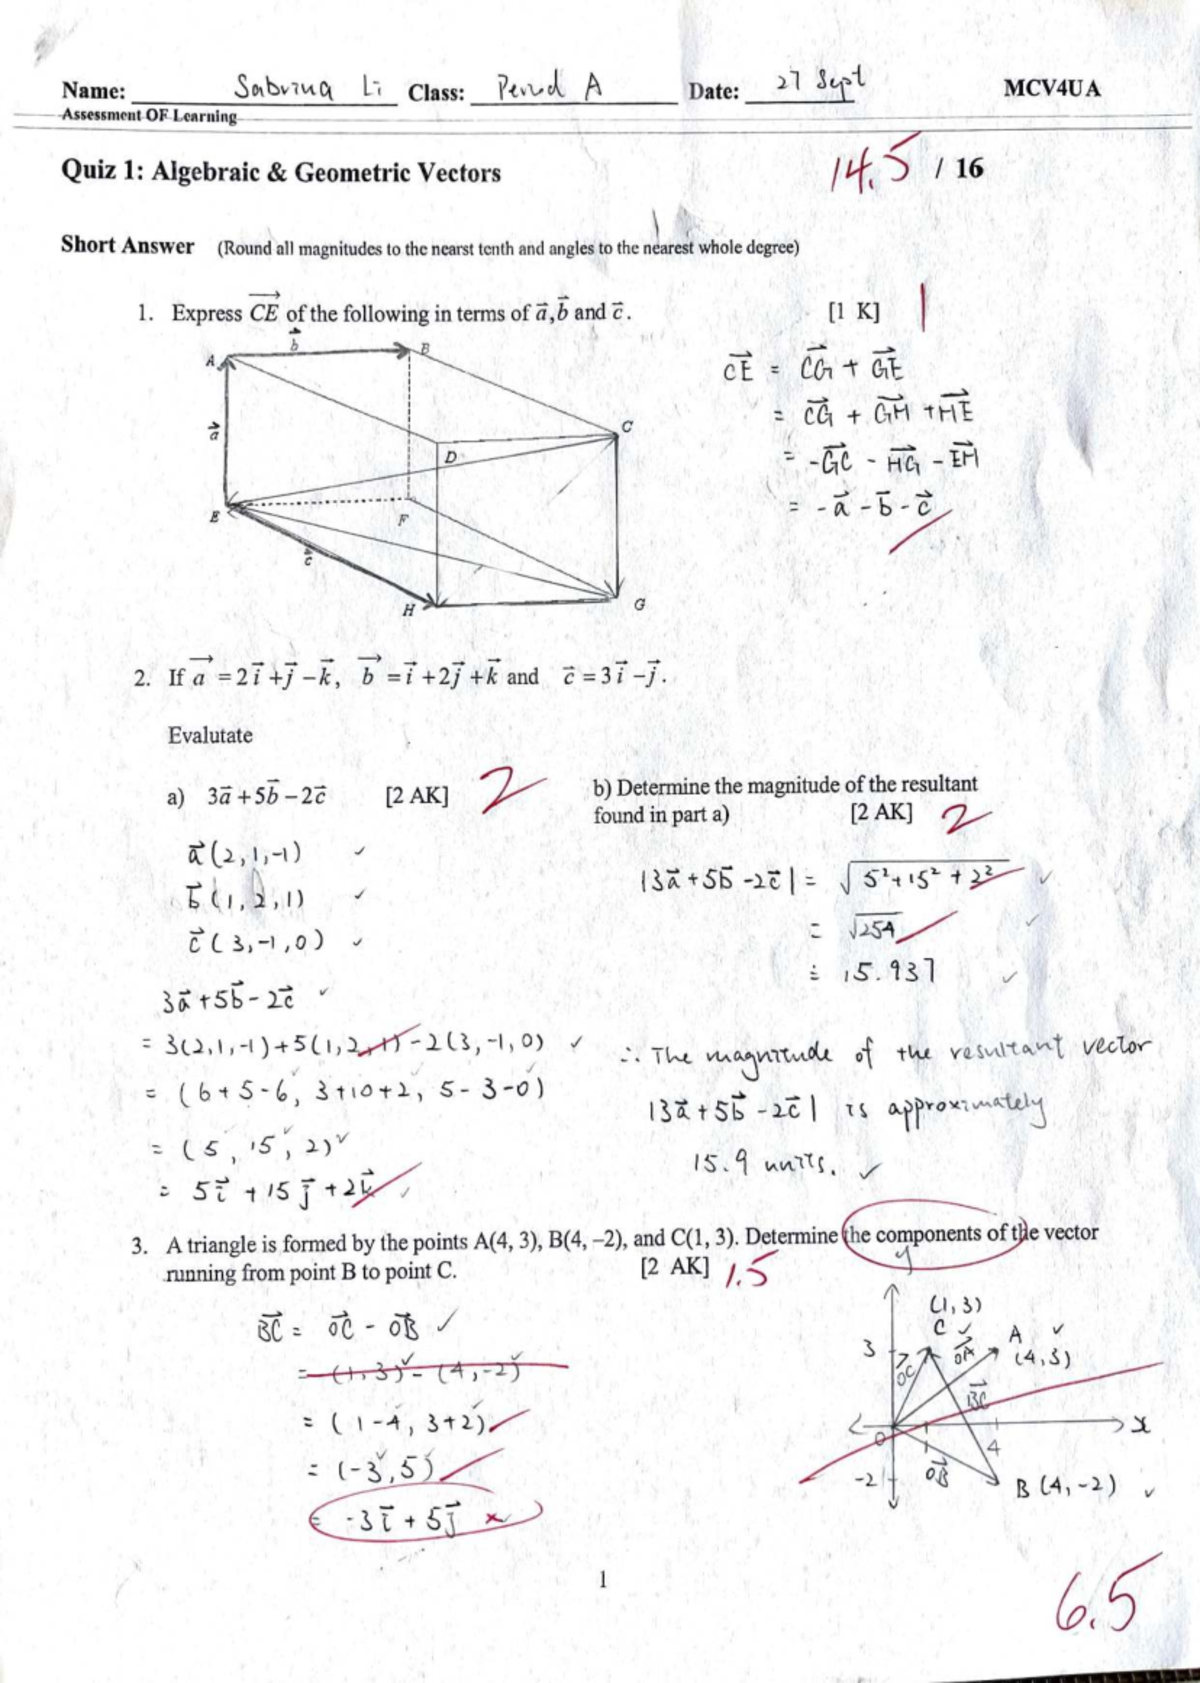 Name: Sabrina Li Class: Period A Date: 27 Sept MCV4UA
Assessment OF Learning
Quiz 1: Algebraic & Geometric Vectors 14.5 / 16
Short Answer (Round all magnitudes to the nearst tenth and angles to the nearest whole degree)
1. Express CE⃗ of the following in terms of a⃗, b⃗ and c⃗. [1 K] 1
A b⃗ B
a⃗ C
D
E F
c⃗
H G
CE⃗ = CG⃗ + GE⃗
= CG⃗ + GH⃗ + HE⃗
= -GC⃗ - HG⃗ - EH⃗
= -a⃗ - b⃗ - c⃗
2. If a⃗ = 2i⃗ + j⃗ – k⃗, b⃗ = i⃗ + 2j⃗ + k⃗ and c⃗ = 3i⃗ – j⃗.
Evalutate
a) 3a⃗ + 5b⃗ – 2c⃗ [2 AK] 2
a⃗ (2, 1, -1) ✓
b⃗ (1, 2, 1) ✓
c⃗ (3, -1, 0) ✓
3a⃗ + 5b⃗ - 2c⃗ ✓
= 3(2, 1, -1) + 5(1, 2, 1) - 2(3, -1, 0) ✓
= (6+5-6, 3+10+2, 5-3-0)
= (5, 15, 2) ✓
= 5i⃗ + 15j⃗ + 2k⃗ ✓
b) Determine the magnitude of the resultant
found in part a) [2 AK] 2
|3a⃗ + 5b⃗ - 2c⃗| = √5² + 15² + 2² ✓
= √254 ✓
≐ 15.937 ✓
∴ The magnitude of the resultant vector
|3a⃗ + 5b⃗ - 2c⃗| is approximately
15.9 units. ✓
3. A triangle is formed by the points A(4, 3), B(4, –2), and C(1, 3). Determine the components of the vector
running from point B to point C. [2 AK] 1.5
BC⃗ = OC⃗ - OB⃗ ✓
= (1, 3) - (4, -2)
= (1-4, 3+2)
= (-3, 5)
= -3i⃗ + 5j⃗ ×
y
(1, 3)
C ✓
3 OC⃗ OA⃗ A ✓
(4, 3)
BC⃗
0 4 x
-2 OB⃗ B (4, -2) ✓
1
6.5